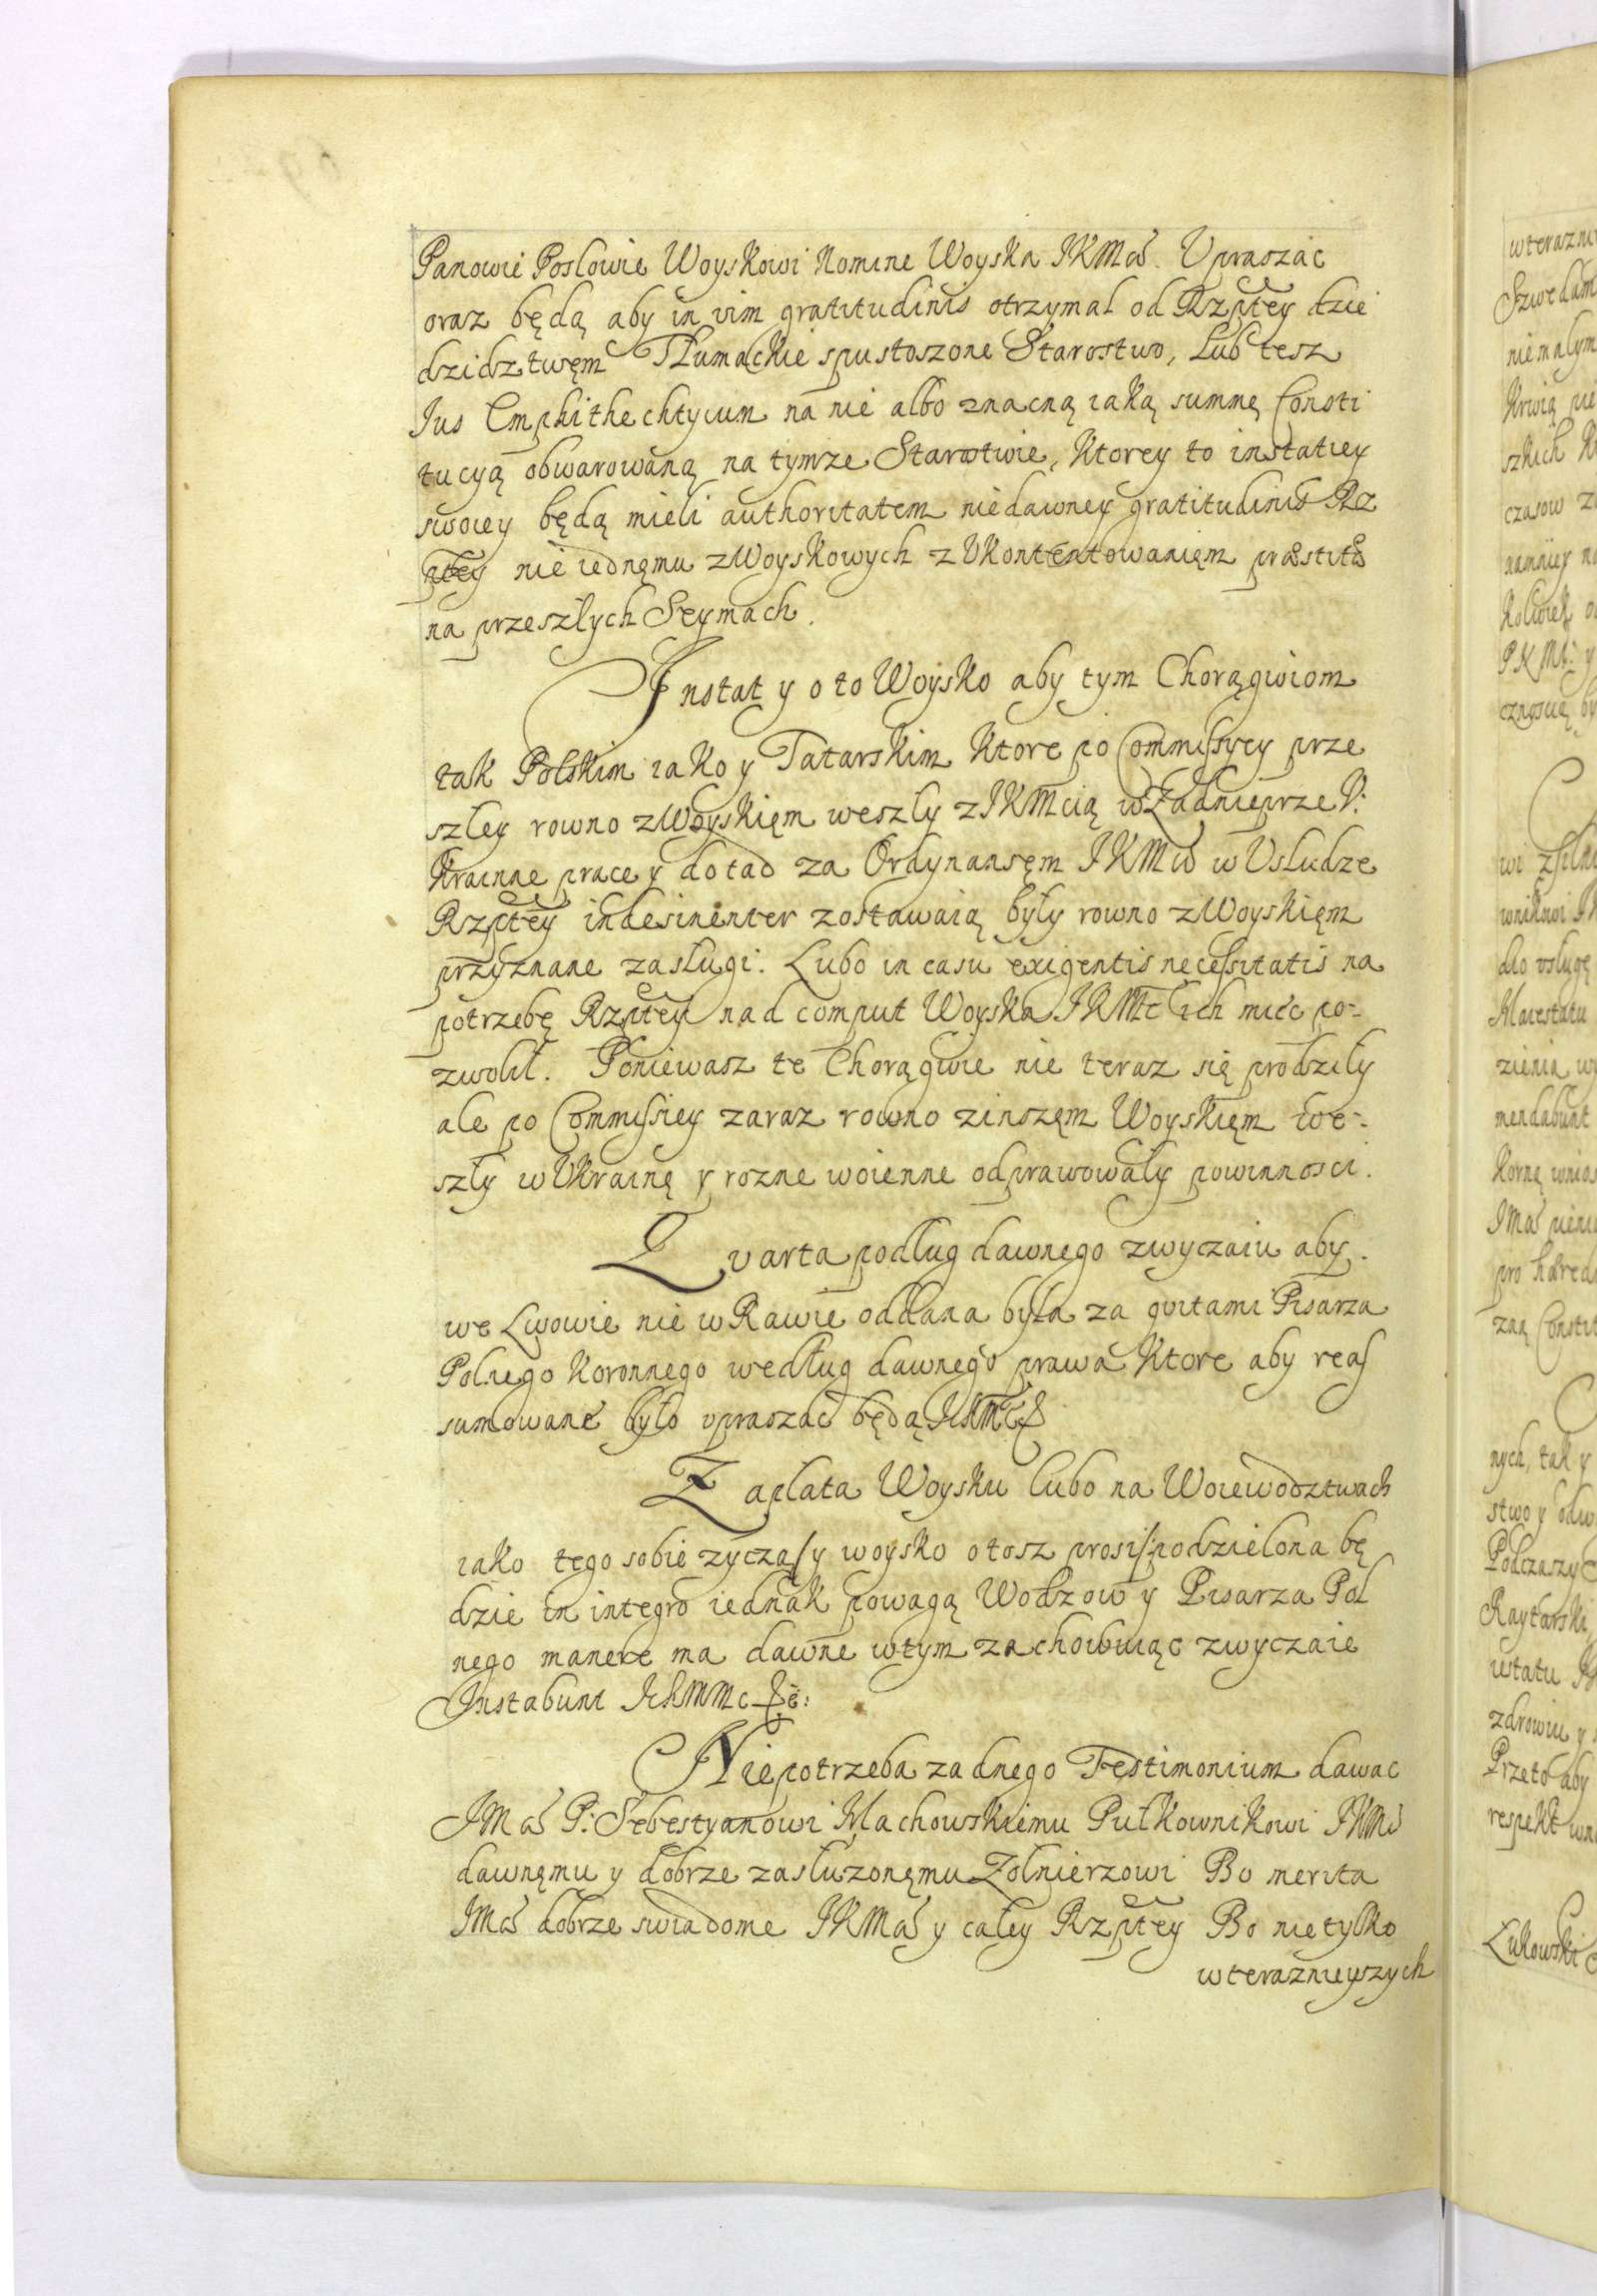 Panowie Posłowie Woyskowi Nomine Woyska JKMći. Vpraszać
oraz będą aby in vim gratitudinis otrzymał od Rzptey dzie
dzidztwęm Tłumackie spustoszone Starostwo, Lub tesz
Ius Emphithechtycum na nie albo znacną iaką summę Consti
tucyą obwarowaną na tymze Starostwie, Ktorey to instatiey
swoiey będą mieli authoritatem niedawney gratitudinis Rz
ptey nie iednęmu z Woyskowych z Vkontentowanięm præstitæ
na przeszłych Seymach.
Instat y o to Woysko aby tym Chorągwiom
tak Polskim iako y Tatarskim Ktore po Commissyey prze
szley rowno z Woyskięm weszły z JKMcią w Zadnieprze V:
Krainne prace y dotąd za Ordynansęm JKMći w Vsłudze
Rzptey indesinenter zostawaią były rowno z Woyskięm
przyznane zasługi. Lubo in casu exigentis necessitatis na
potrzebę Rzptey nad comput Woyska JKMć ich mieć po-
zwolił. Poniewasz te Chorągwie nie teraz się prodziły
ale po Commissiey zaraz rowno z inszęm Woyskięm we-
szły w Vkrainę y rozne woienne odprawowały powinnosci.
Qvarta podług dawnego zwyczaiu aby
we Lwowie nie w Rawie oddana była za qvitami Pisarza
Polnego Koronnego według dawnego prawa Ktore aby reas
sumowane było vpraszac będą
Zapłata Woysku lubo na Woiewodztwach
iako tego sobie zycząsy woysko otosz prosi podzielona bę
dzie in integro iednak powagą Wodzow y Pisarza Pol
nego manere ma dawne wtym zachowuiąc zwyczaie
Instabunt
Niepotrzeba zadnego Testimonium dawac
JMći P: Sebestyanowi Machowskiemu Pułkownikowi JKMći
dawnęmu y dobrze zasłuzonęmu Zołnierzowi Bo merita
JMći dobrze swiadome JKMći y całey Rzptey Bo nietylko
wteraznieyszych